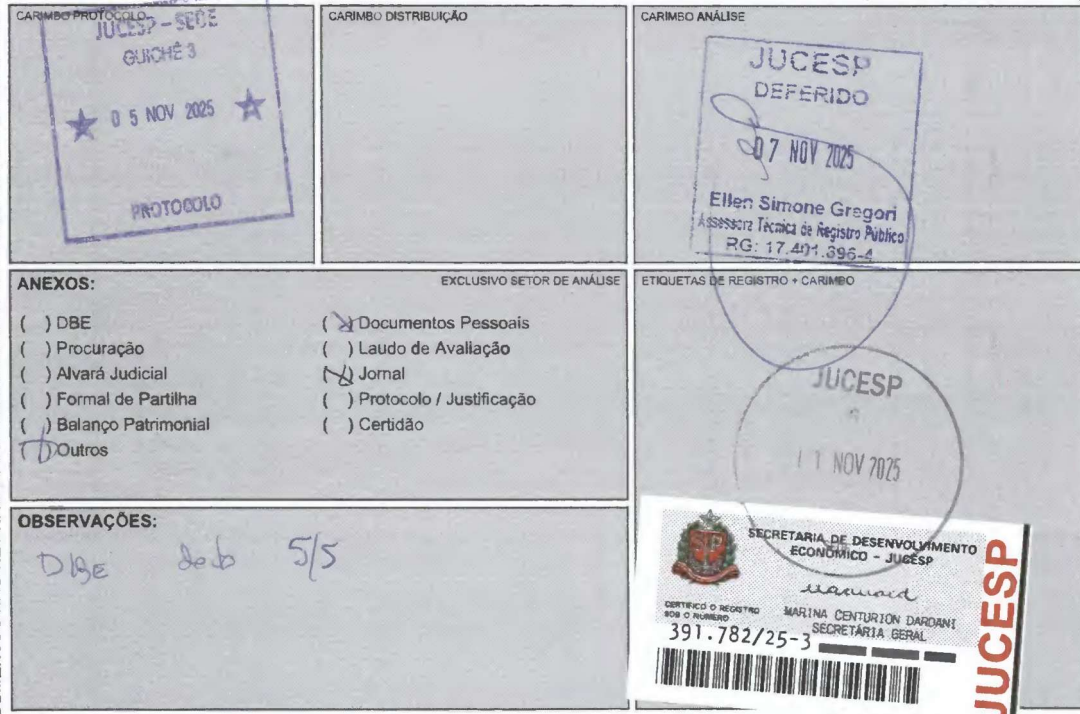 CARIMBO PROTOCOLO
JUCESP - SEDE
GUICHÊ 3
05 NOV 2025
PROTOCOLO
CARIMBO DISTRIBUIÇÃO
CARIMBO ANÁLISE
JUCESP
DEFERIDO
07 NOV 2025
Ellen Simone Gregori
Assessora Técnica de Registro Público
RG: 17.401.396-4
ANEXOS:
EXCLUSIVO SETOR DE ANÁLISE
( ) DBE
( ) Procuração
( ) Alvará Judicial
( ) Formal de Partilha
( ) Balanço Patrimonial
( ) Outros
( ) Documentos Pessoais
( ) Laudo de Avaliação
( ) Jornal
( ) Protocolo / Justificação
( ) Certidão
ETIQUETAS DE REGISTRO + CARIMBO
JUCESP
11 NOV 2025
OBSERVAÇÕES:
DBE 5/5
SP
SECRETARIA DE DESENVOLVIMENTO
ECONÔMICO - JUCESP
CERTIFICO O REGISTRO
SOB O NÚMERO
MARINA CENTURION DARDANI
SECRETÁRIA GERAL
391.782/25-3
JUCESP